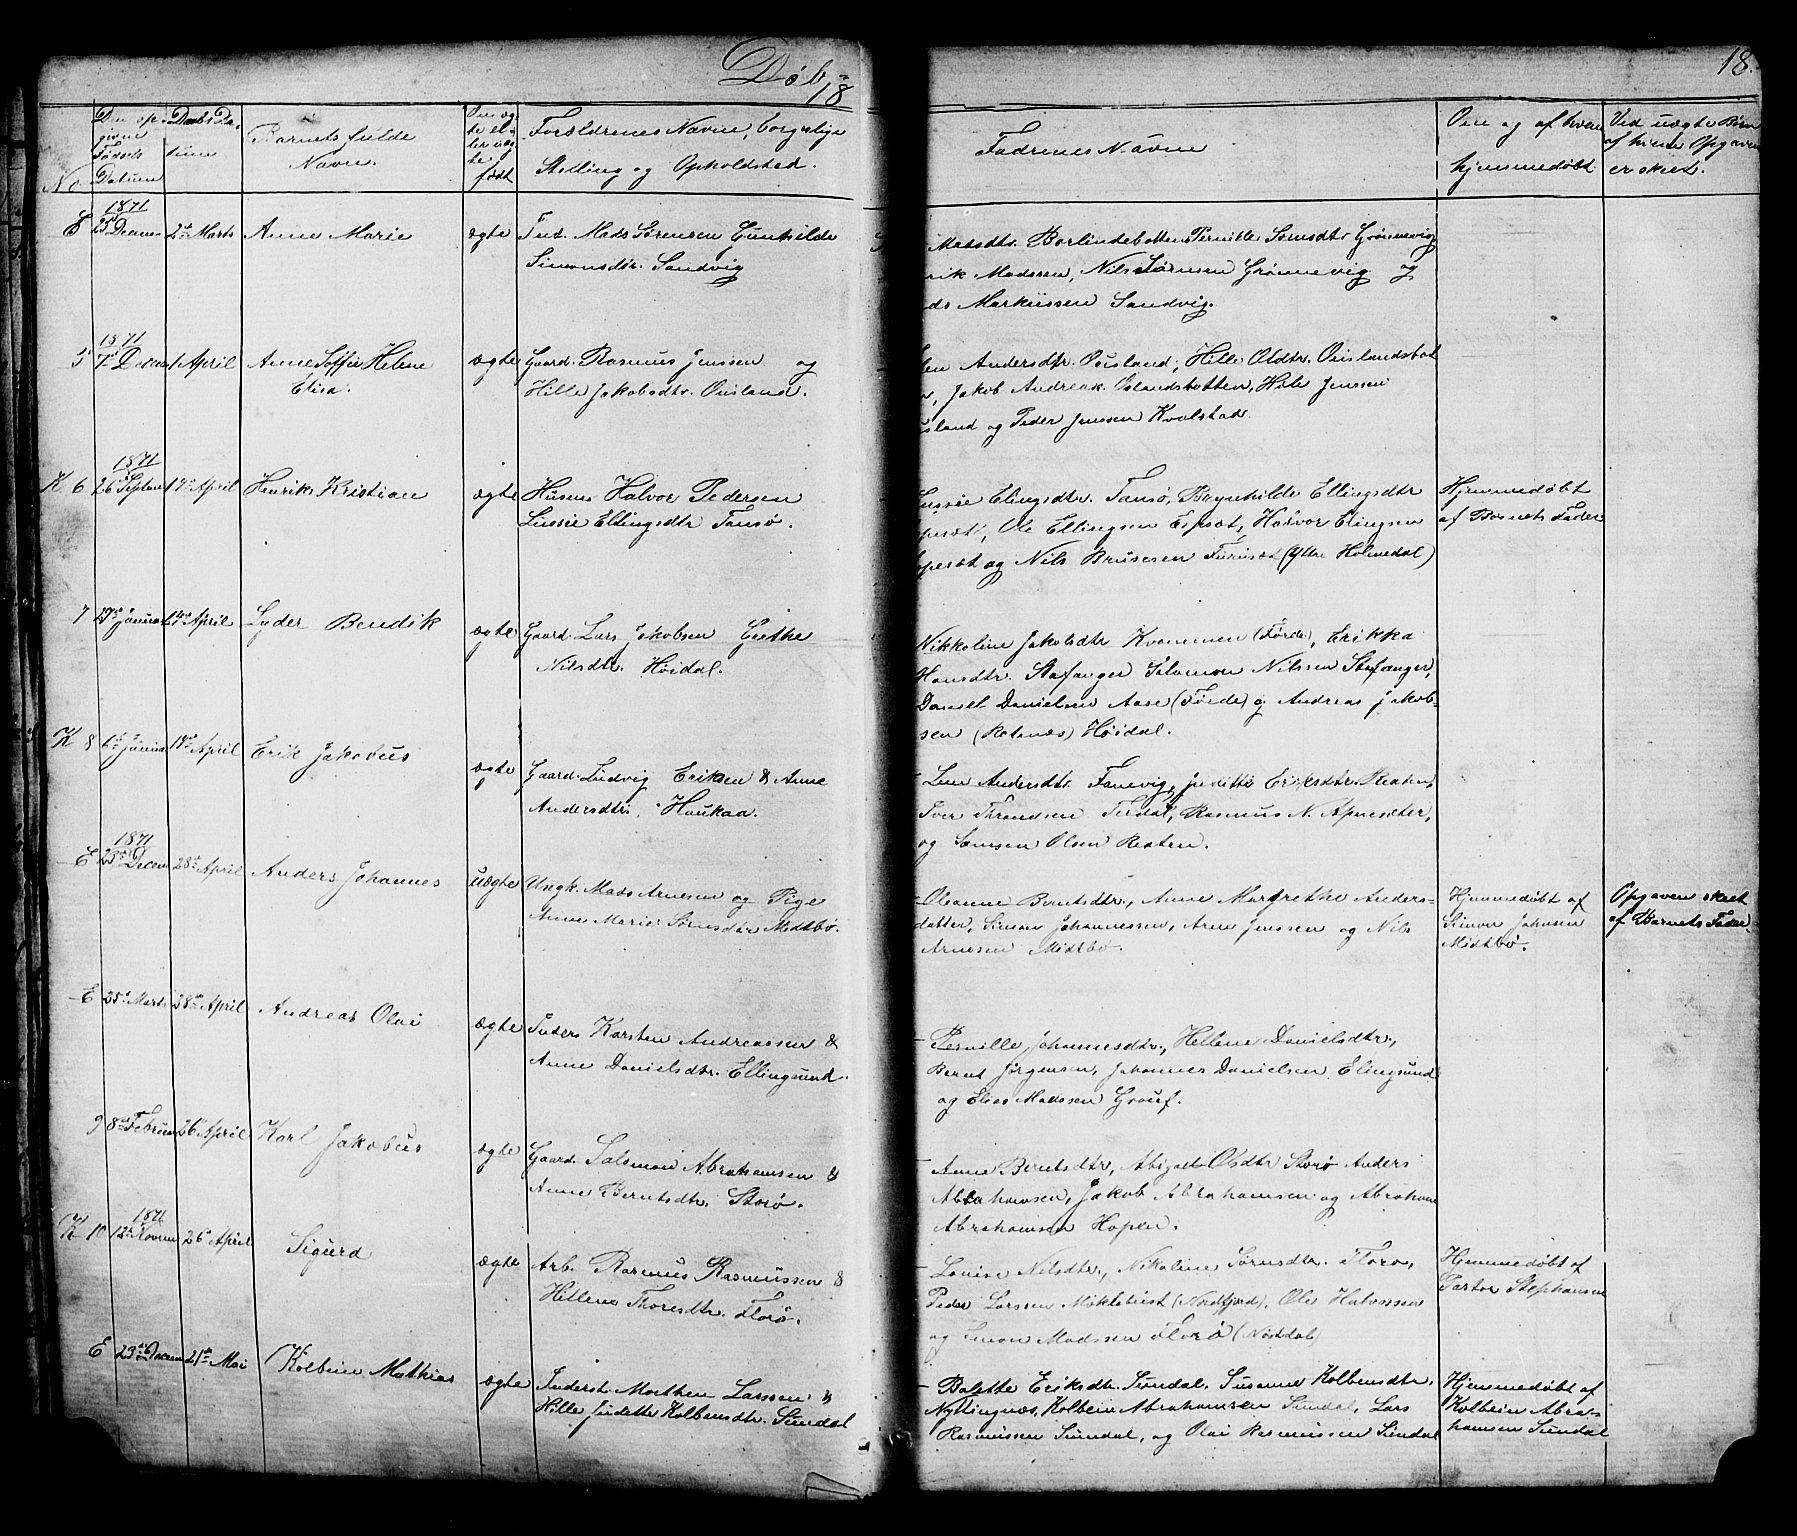 Døb
18
18.
No
Den op-
givne
Fødsels
Datum
Daabs Da-
tum
Barnets fulde
Navn.
Om æg
te el-
ler uæg
te
født
Forældrenes Navne, borgerlige
Stilling og Opholdsted.
Fadrenes Navne
Om og af hvem
hjemmedøbt
Ved uægte Børn
af hvem Opgaven
er skeet.
1871
E 25de Decem 2de Marts Anne Marie ægte Ind. Mads Sørensen Gunhilde
Simonsdtr. Sandvig
Matsdtr. Borlindebotten Pernille Sørnsdtr Grønnevig
rik Madssen, Nils Sørnsen Grønnevig og
ds Markussen Sandvig.
1871
5 7de Decem 1 April Anne Soffie Helene ægte Gaard. Rasmus Jenssen og
Elisa. Hille Jakobsdtr. Ousland.
en Andersdtr. Ousland, Hille Olsdtr. Ouslandsbot
, Jakob Andreas. Oslandsbotten, Hile Jenssen
sland og Peder Jenssen Kvalstad.
1871
K 6 26 Septem 14de April Henrik Kristian ægte Husm. Halvor Pedersen
Lussie Ellingsdtr Tansø.
Lussie Elingsdtr. Tansø, Brynhilde Ellingsdtr
peset, Ole Ellingsen Espeset, Halvor Elingsen
peset og Nils Brusesen Furuset (Ytre Holmedal)
Hjemmedøbt
af Barnets Fader
7 29de Januar 14de April Lyder Bendik ægte Gaard. Lars Jakobsen Gjethe
Nilsdtr. Høidal.
Nikkoline Jakobsdtr Kvammen (Førde), Erikka
Hansdtr. Stafanger Salomon Nilssen Stafanger,
Daniel Danielsen Aase (Førde) og Andreas Jakob-
sen (Retanæs) Høidal.
K 8 6te Januar 14de April Erik Jakobus ægte Gaard. Ludvig Eriksen & Anne
Andersdtr. Haukaa.
Line Andersdtr. Fanevig, Juditte Eriksdtr. Reaten,
Iver Thrandsen Terdal, Rasmus N. Apneseter,
og Samsen Olsen Reaten.
1871
E 23de Decem 28de April Anders Johannes uægte Ungk. Mads Arnesen og Pige
Anne Marie Sørnsdtr Midtbø.
Oleanne Berntsdtr., Anne Margrethe Anders-
datter, Simon Johannessen, Arne Jenssen og Nils
Arnesen Midtbø.
Hjemmedøbt af
Simon Johnsen
Midtbø.
Opgaven skeet
af Barnets Fader.
E 25de Marts 28de April Andreas Olai ægte Inders Karsten Andreassen &
Anne Danielsdtr. Ellingsund.
Pernille Johannesdtr., Hellene Danielsdtr.,
Bernt Jørgensen, Johannes Danielsen Elingsund
og Elias Madssen Grouf.
9 8de Februar 26de April Karl Jakobus ægte Gaard. Salomon Abrahamsen &
Anne Berntsdtr. Storø.
Anne Berntsdtr, Abigael Olsdtr Storø Anders
Abrahamsen, Jakob Abrahamsen og Abraham
Abrahamsen Hoplen.
1871
K 10 12te Novem 26de April Sigurd ægte Arb. Rasmus Rasmussen &
Hellene Thoresdtr. Florø.
Lovise Nilsdtr., Nikoline Sørnsdtr. Florø,
Peder Larssen Miklebust (Nordfjord), Ole Halvorssen
og Simon Madssen Florø (Nøstdal)
Hjemmedøbt af
Pastor Stephansen
E 23de Decem 21de Mai Kolbein Mathias ægte Inderst. Morthen Larssen &
Hille Judette Kolbensdtr. Sundal
Bolette Eriksdtr. Sundal, Susanne Kolbensdtr.
Nyttingnæs, Kolbein Abrahamsen Sundal, Lars
Rasmussen Sundal, og Olai Rasmussen Sundal
Hjemmedøbt af
Kolbein Abra-
hamsen Sundal